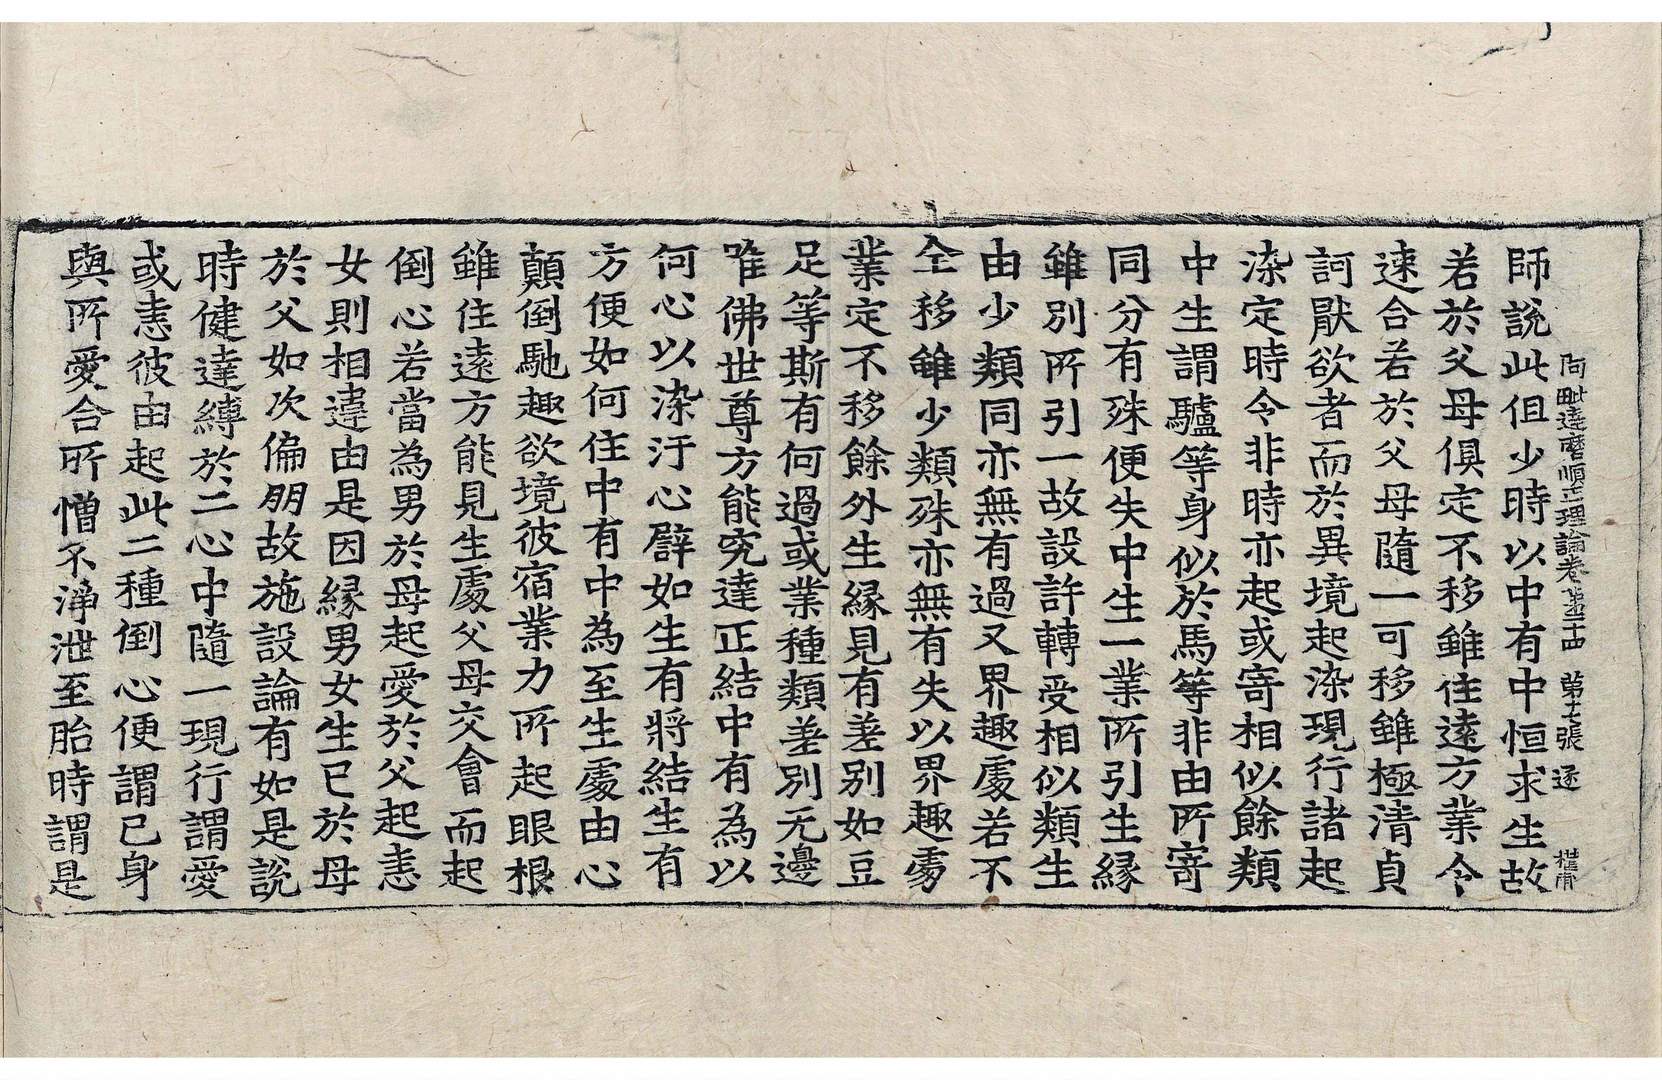 阿毗達磨順正理論卷第二十四 第十七張 逐
師說此但少時以中有中恒求生故
若於父母俱定不移雖住遠方業令
速合若於父母隨一可移雖極清貞
訶猒欲者而於異境起染現行諸起
染定時令非時亦起或寄相似餘類
中生謂驢等身似於馬等非由所寄
同分有殊便失中生一業所引生縁
雖別所引一故設許轉受相似類生
由少類同亦無有過又界趣處若不
全移雖少類殊亦無有失以界趣處
業定不移餘外生縁見有差別如豆
足等斯有何過或業種類差別无邊
唯佛世尊方能究達正結中有為以
何心以染汙心譬如生有將結生有
方便如何住中有中為至生處由心
顛倒馳趣欲境彼宿業力所起眼根
雖住遠方能見生處父母交會而起
倒心若當為男於母起愛於父起恚
女則相違由是因縁男女生已於母
於父如次偏朋故施設論有如是說
時健達縛於二心中隨一現行謂愛
或恚彼由起此二種倒心便謂己身
與所愛合所憎不淨泄至胎時謂是